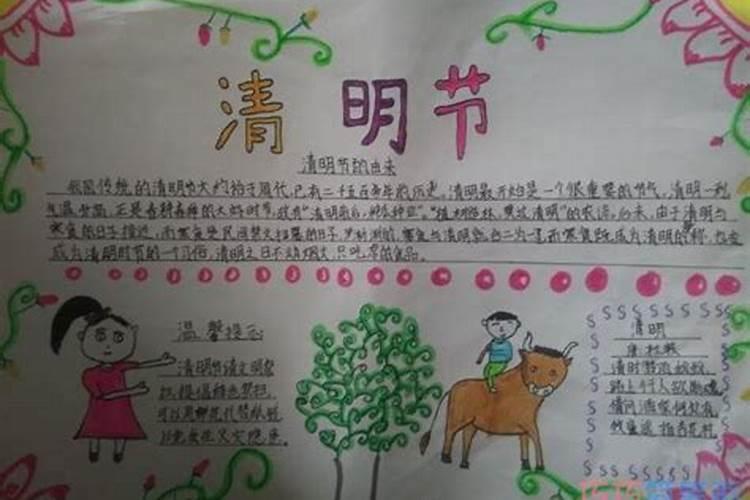 清明节
清明节的由来
我国传统的清明节大约始于周代,已有二千五百多年的历史。清明最开始是一个很重要的节气,清明一到
气温升高,正是春耕春种的大好时节,故有“清明前后,种瓜种豆”。“植树造林,莫过清明”的农谚。后来,由于清明与
寒食的日子接近,而寒食是民间禁火扫墓的日子,
寒食与清明
合二为一了而寒食既成为清明的
成为清明时节的一个习俗,清明之日不动烟火,只吃凉的食品。
温馨提示
清明节请文明祭
扫,提倡绿色祭扫
可以用鲜花代替
清明
唐 杜牧
清明时节雨纷纷,
路上行人欲断魂。
借问酒家何处有,
牧童遥指杏花村。